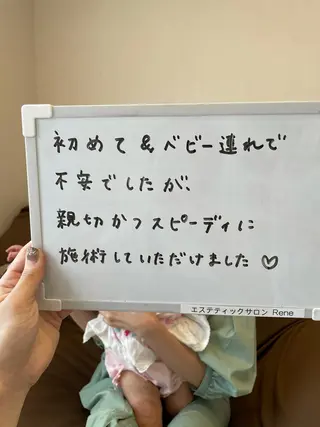 初めて&ベビー連れで
不安でしたが、
親切かつスピーディに
施術していただけました♡
エステティックサロン Rene